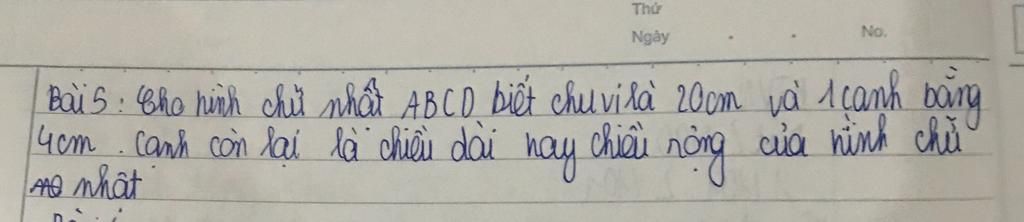 Thứ
Ngày . . No.
Bài 5: Cho hình chữ nhất ABCD biết chu vi là 20cm và 1 cạnh bằng
4cm. Cạnh còn lại là chiều dài hay chiều rộng của hình chữ
nhật